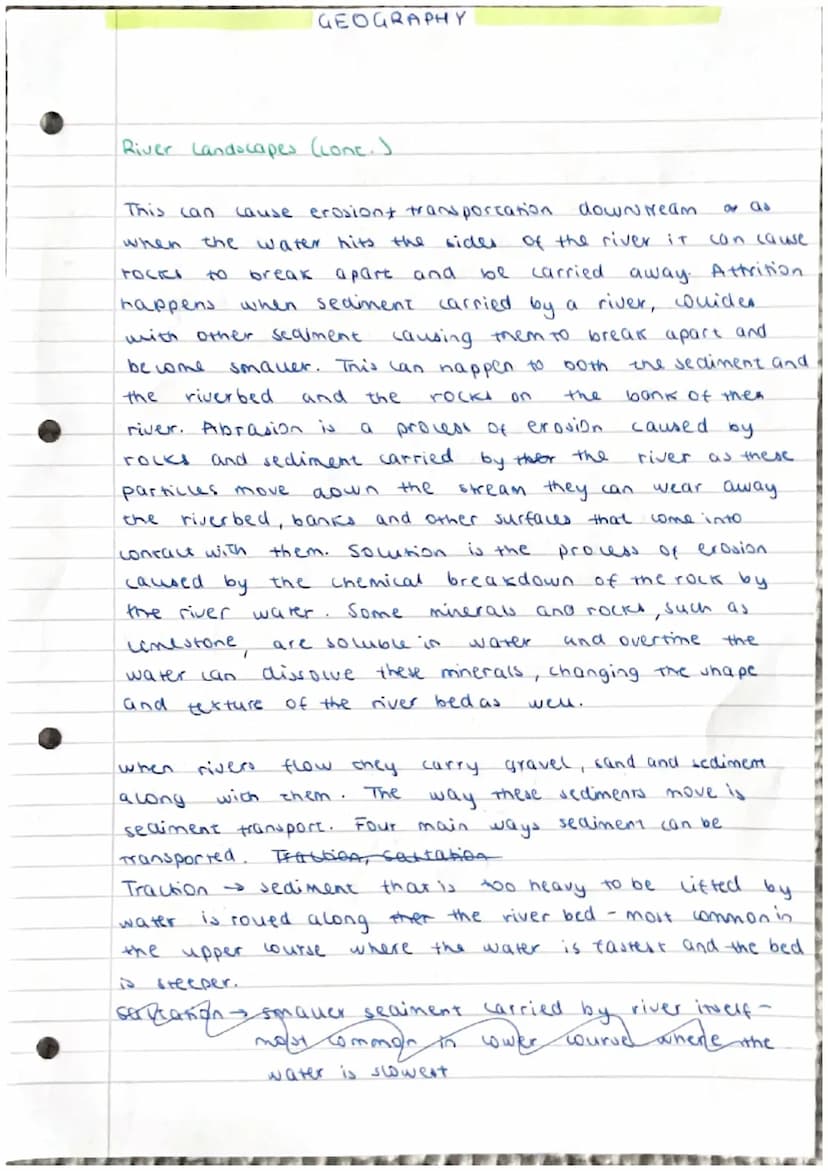 GEOGRAPHY
River Landscapes (conc.)
This can cause erosion+ transportation downstream or as
when the water hits the sides of the river it can cause
rocks to break apart and be carried away. Attrition
happens when sediment carried by a river, collides
with other sediment causing them to break apart and
become smaller. This can happen to both the sediment and
the riverbed and the rocks on the bank of the
river. Abrasion is a process of erosion caused by
rocks and sediment carried by the river as these
particles move down the stream they can wear away
the riverbed, banks and other surfaces that come into
contact with them. Solution is the process of erosion
caused by the chemical breakdown of the rock by
the river water. Some minerals and rocks, such as
limestone, are soluble in water and overtime the
water can dissolve these minerals, changing the shape
and texture of the river bed as well.
When rivers flow they carry gravel, sand and sediment
along with them. The way these sediments move is
sediment transport. Four main ways sediment can be
transported. Traction, saltation
Traction → sediment that is too heavy to be lifted by
water is rolled along the river bed - most common in
the upper course where the water is fastest and the bed
is steeper.
Saltation → smaller sediment carried by river itself -
most common in lower course where the
water is slowest